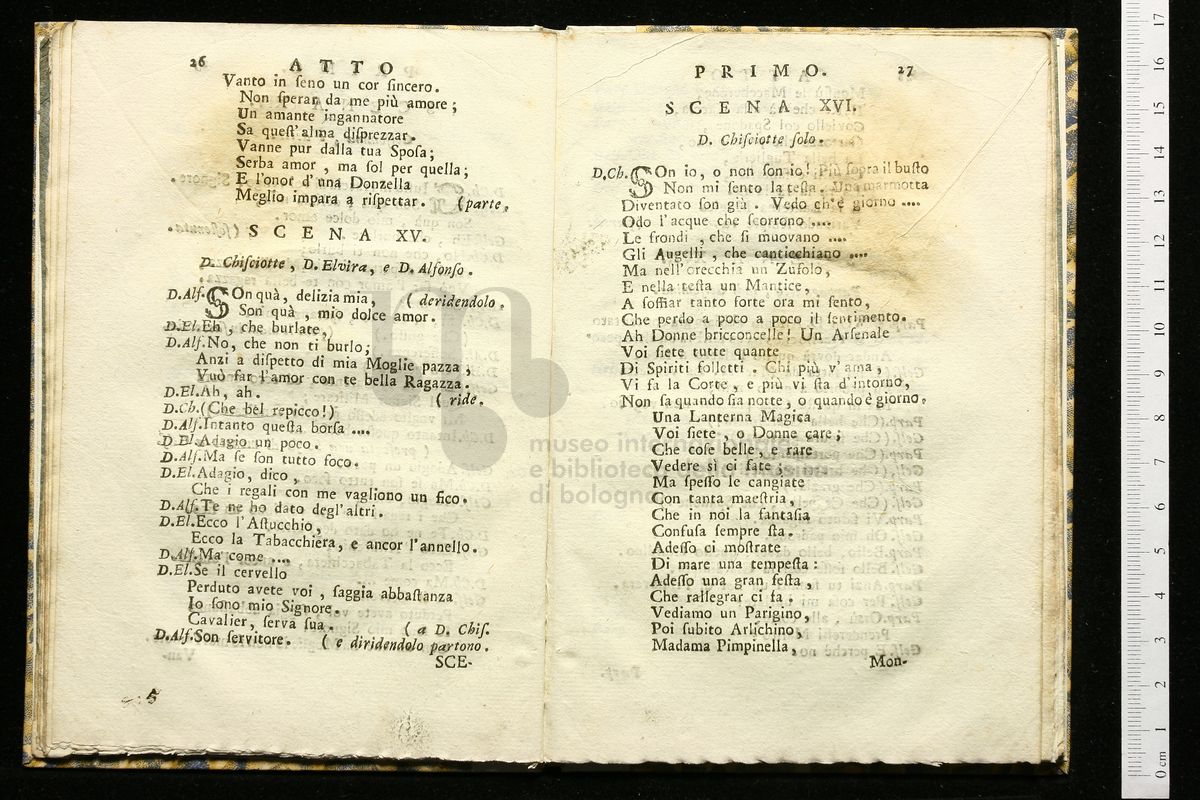 26
ATTO
Vanto in ſeno un cor ſincero.
Non ſperar da me più amore;
Un amante ingannatore
Sa queſt'alma diſprezzar.
Vanne pur dalla tua Spoſa;
Serba amor, ma ſol per quella;
E l'onor d'una Donzella
Meglio impara a riſpettar. (parte.
SCENA XV.
D. Chiſciotte, D. Elvira, e D. Alfonſo.
D.Alf. SOn quà, delizia mia, (deridendolo.
Son quà, mio dolce amor.
D.El. Eh, che burlate,
D.Alf. No, che non ti burlo;
Anzi a diſpetto di mia Moglie pazza,
Vuò far l'amor con te bella Ragazza.
D.El. Ah, ah. (ride.
D.Ch. (Che bel repicco!)
D.Alf. Intanto queſta borſa ....
D.El. Adagio un poco.
D.Alf. Ma ſe ſon tutto foco.
D.El. Adagio, dico,
Che i regali con me vagliono un fico.
D.Alf. Te ne ho dato degl'altri.
D.El. Ecco l'Aſtucchio,
Ecco la Tabacchiera, e ancor l'annello.
D.Alf. Ma come ....
D.El. Se il cervello
Perduto avete voi, ſaggia abbaſtanza
Io ſono mio Signore.
Cavalier, ſerva ſua. (a D. Chiſ.
D.Alf. Son ſervitore. (e diridendolo partono.
SCE-
5
PRIMO.
27
SCENA XVI.
D. Chiſciotte ſolo.
D.Ch. SOn io, o non ſon io! Più ſopra il buſto
Non mi ſento la teſta. Una marmotta
Diventato ſon già. Vedo ch'è giorno ....
Odo l'acque che ſcorrono ....
Le frondi, che ſi muovano ....
Gli Augelli, che canticchiano ....
Ma nell'orecchia un Zufolo,
E nella teſta un Mantice,
A ſoffiar tanto forte ora mi ſento,
Che perdo a poco a poco il ſentimento.
Ah Donne bricconcelle! Un Arſenale
Voi ſiete tutte quante
Di Spiriti folletti. Chi più v'ama,
Vi fa la Corte, e più vi ſta d'intorno,
Non ſa quando ſia notte, o quando è giorno.
Una Lanterna Magica
Voi ſiete, o Donne care;
Che coſe belle, e rare
Vedere sì ci fate;
Ma ſpeſſo le cangiate
Con tanta maeſtria,
Che in noi la fantaſia
Confuſa ſempre ſta.
Adeſſo ci moſtrate
Di mare una tempeſta:
Adeſſo una gran feſta,
Che rallegrar ci fa.
Vediamo un Parigino,
Poi ſubito Arlichino,
Madama Pimpinella,
Mon-
museo internazionale
e biblioteca della musica
di bologna
17
16
15
14
13
12
11
10
9
8
7
6
5
4
3
2
1
0 cm